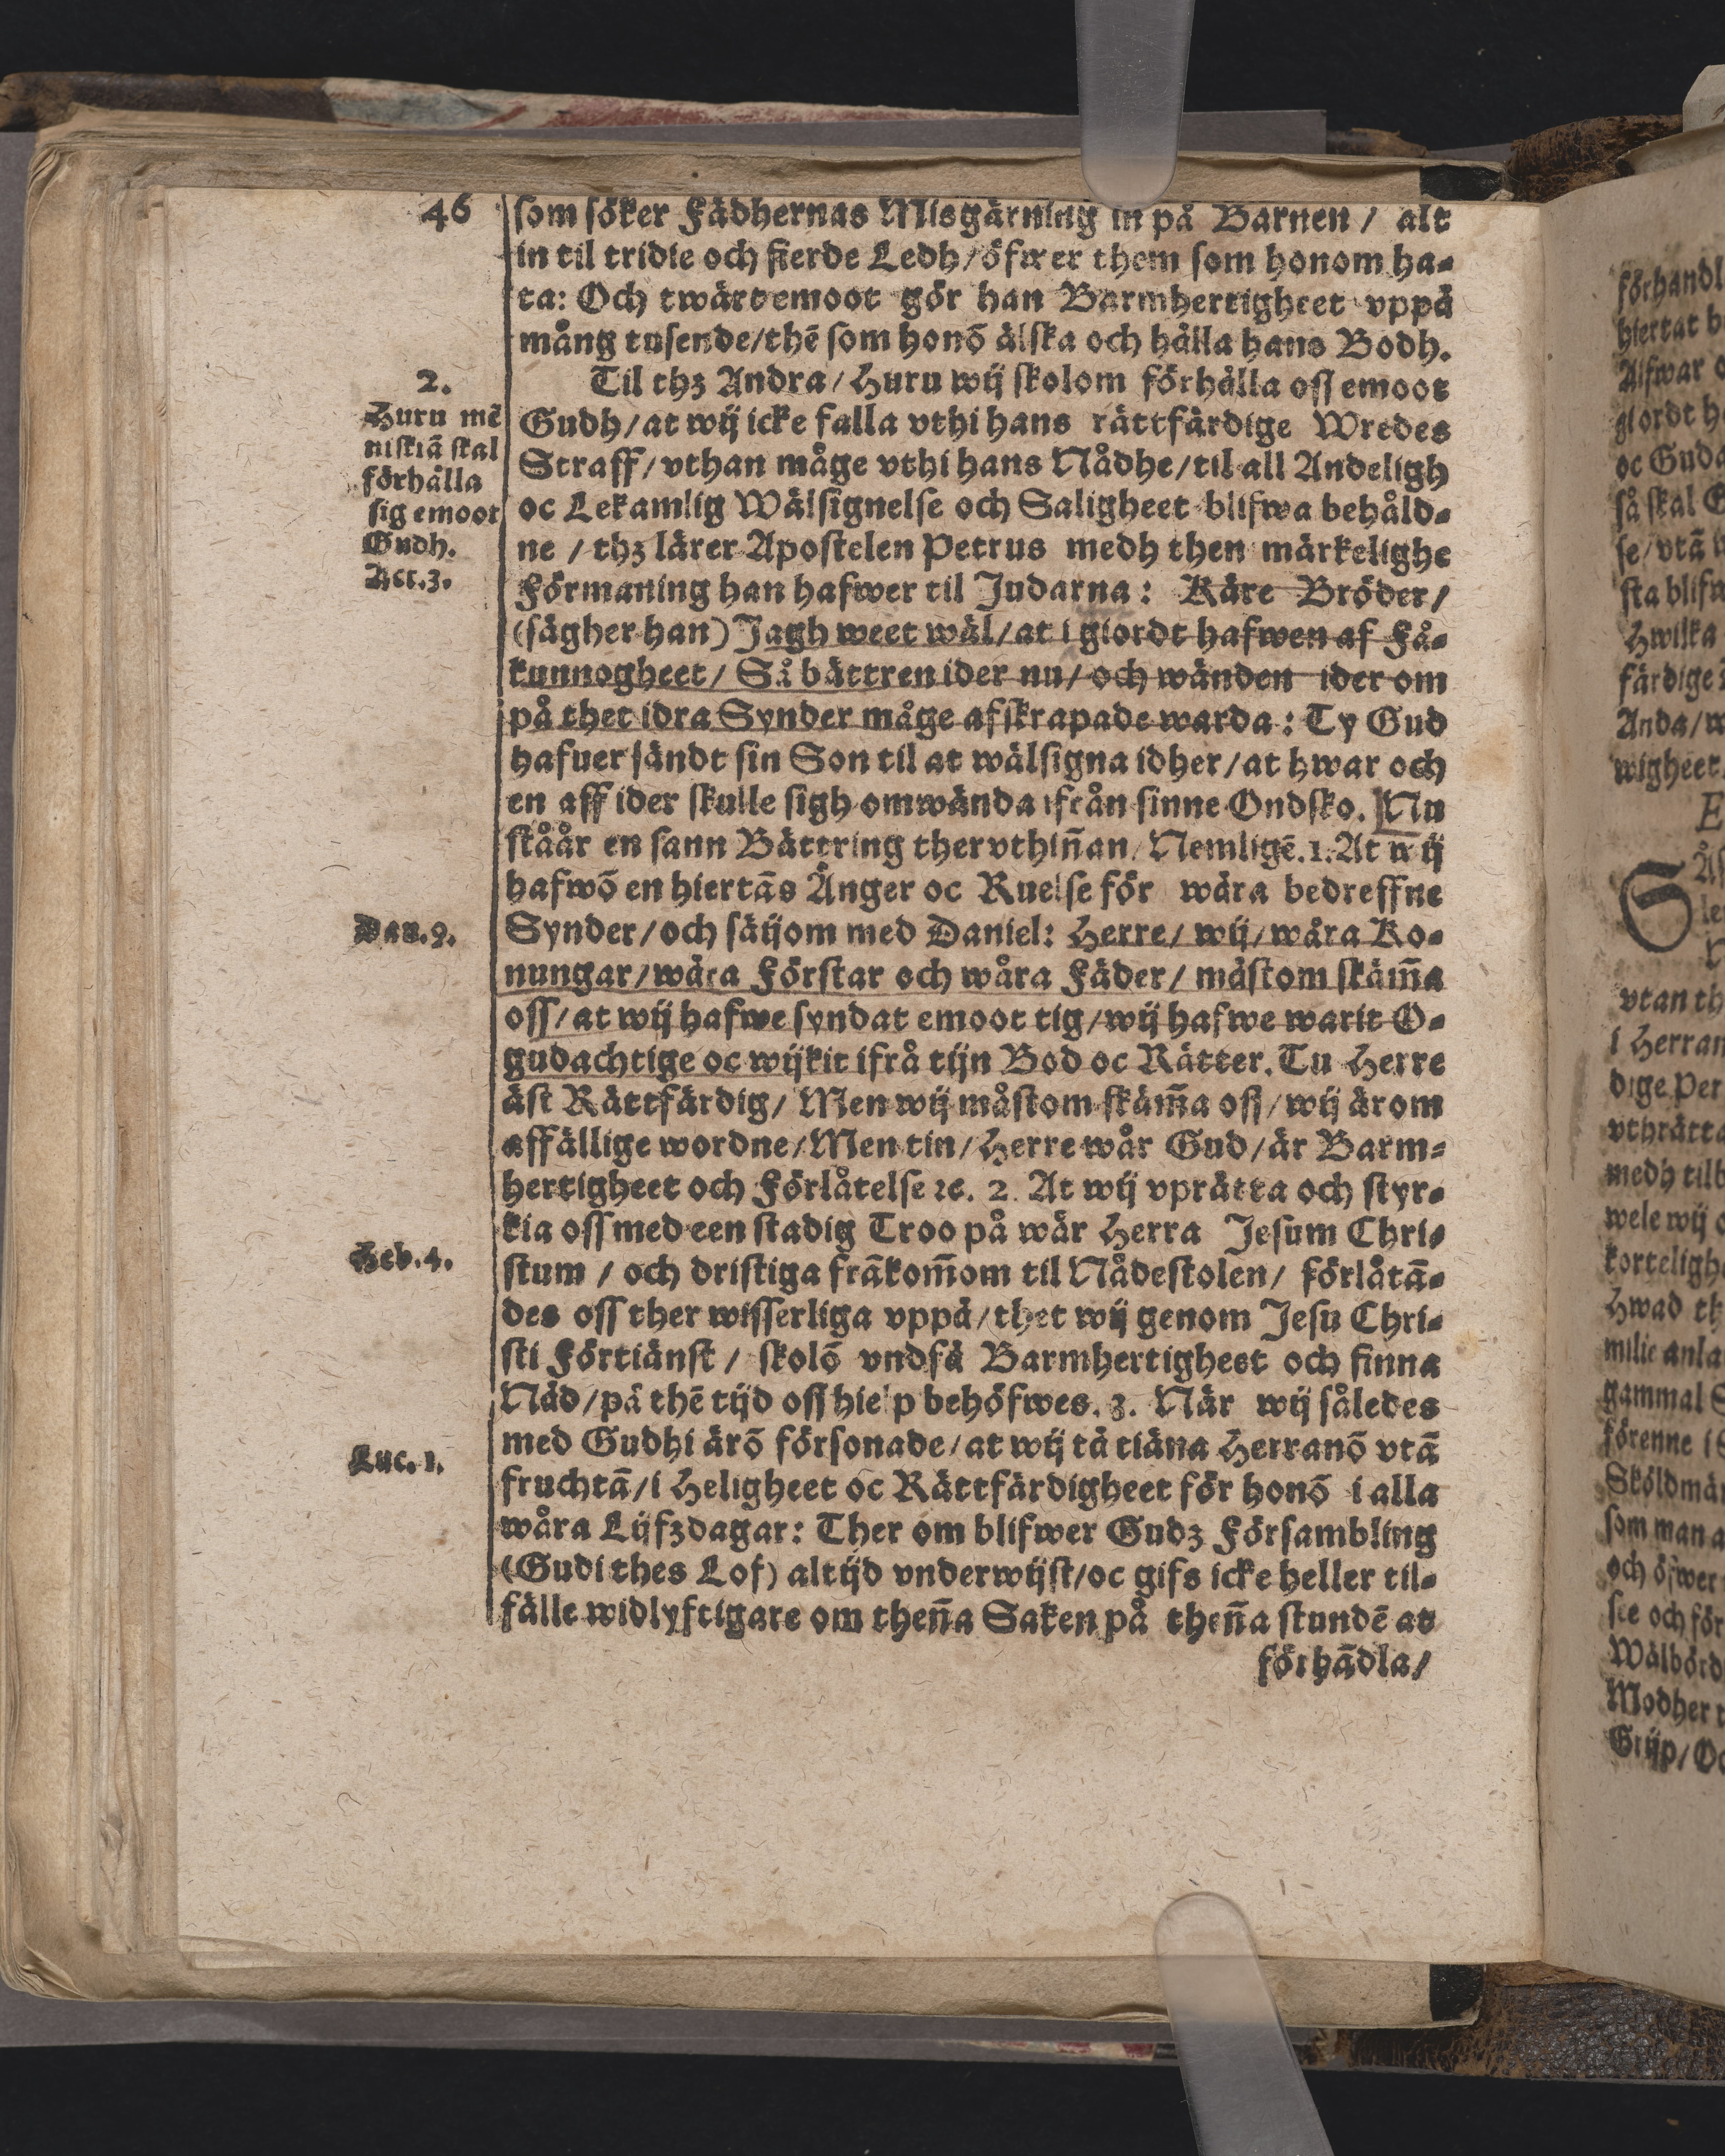 46
som söker Fädhernas Misgärning in på Barnen / alt
in til tridie och fierde Ledh / öfwer them som honom ha-
ta: Och twärt emoot gör han Barmhertigheet vppå
mång tusende/thē som honō älska och hålla hans Bodh.
2.
Til thz Andra / Huru wij skolom förhålla oss emoot
Huru mē
niskiā skal
förhålla
sig emoot
Gudh.
Act.3.
Gudh/at wij icke falla vthi hans rättfärdige Wredes
Straff/vthan måge vthi hans Nådhe/til all Andeligh
oc Lekamlig Wälsignelse och Saligheet blifwa behåld-
ne / thz lärer Apostelen Petrus medh then märkelighe
Förmaning han hafwer til Judarna: Käre Bröder/
(sägher han) Jagh weet wäl/at i giordt hafwen af Få-
kunnogheet/ Så bättren ider nu/ och wänden ider om
på thet idra Synder måge afskrapade warda: Ty Gud
hafuer sändt sin Son til at wälsigna idher/at hwar och
en aff ider skulle sigh omwända ifrån sinne Ondsko. Nu
ståår en sann Bättring ther vthiñan/ Nemligē.1. At wij
hafwō en hiertās Ånger oc Ruelse för wåra bedreffne
Dan.9.
Synder/och säijom med Daniel: Herre/ wij/wåra Ko-
nungar/wåra Förstar och wåra Fäder/ måstom skäm̄a
oss/at wij hafwe syndat emoot tig/wij hafwe warit O-
gudachtige oc wijkit ifrå tijn Bod oc Rätter. Tu Herre
äst Rättfärdig/ Men wij måstom skäm̄a oss/wij ärom
affällige wordne/Men tin/Herre wår Gud/är Barm-
hertigheet och Förlåtelse ꝛc. 2. At wij vprätta och styr-
kia oss med een stadig Troo på wår Herra Jesum Chri-
Heb.4.
stum / och dristiga frākom̄om til Nådestolen/ förlåtā-
des oss ther wisserliga vppå/thet wij genom Jesu Chri-
sti Förtiänst / skolō vndfå Barmhertigheet och finna
Nåd/på thē tijd oss hielp behöfwes. 3. När wij således
Luc. 1.
med Gudhi ärō försonade/at wij tå tiäna Herranō vtā
fruchtā/i Heligheet oc Rättfärdigheet för honō i alla
wåra Lijfzdagar: Ther om blifwer Gudz Försambling
(Gudi thes Lof) altijd vnderwijst/oc gifs icke heller til-
fälle widlyftigare om theña Saken på theña stundē at
förhādla/
förhandl
hiertat
Alfwar
giordt
oc Guda
så skal
se/vtā
sta blifw
Hwilka
färdige
Anda/
wigheet
E
vtan th
i Herran
dige Per
vthrätta
medh tilb
wele wij
korteligh
Hwad th
milie anla
gammal
förenne i
Sköldmä
som man a
och öfwer
see och för
Wälbörd
Modher
Grijp/Oc